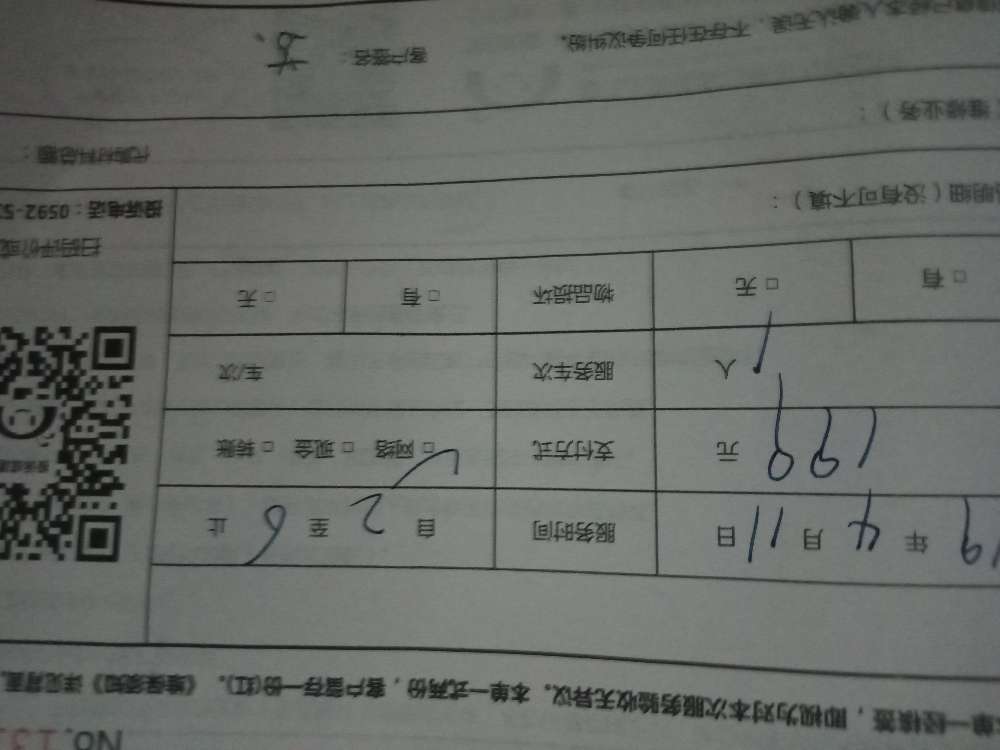 NO.131
单一经核签，即视为对本次服务验收无异议。本单一式两份，客户留存一份(红)。《维保须知》详见背面
19年4月11日 服务时间 自2至6止
199元 支付方式 □网络 ✓ □现金 □转账
1人 服务车次 车/次
□有 □无 物品损坏 □有 □无
扫码评价或
明细（没有可不填）：
投诉电话：0592-5
维修业务）： 代购材料总额：
本人确认无误，不存在任何争议纠纷。 客户签名：